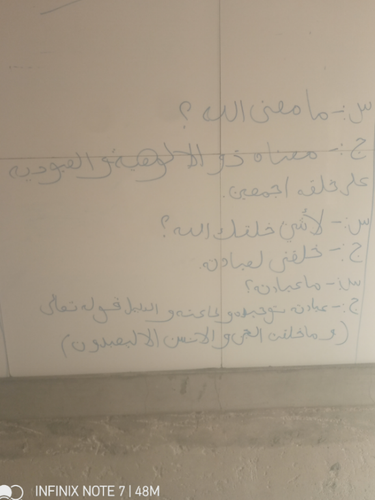 س:- ما معنى الله ؟
ج:- معناه ذو الالوهية و العبودية
على خلقه اجمعين.
س:- لأي خلقك الله؟
ج:- خلقني لعبادته.
س:- ما عبادته؟
ج:- عبادته توحيده و طاعته و الدليل قوله تعالى
(و ما خلقت الجن و الانس الا ليعبدون)
INFINIX NOTE 7 | 48M